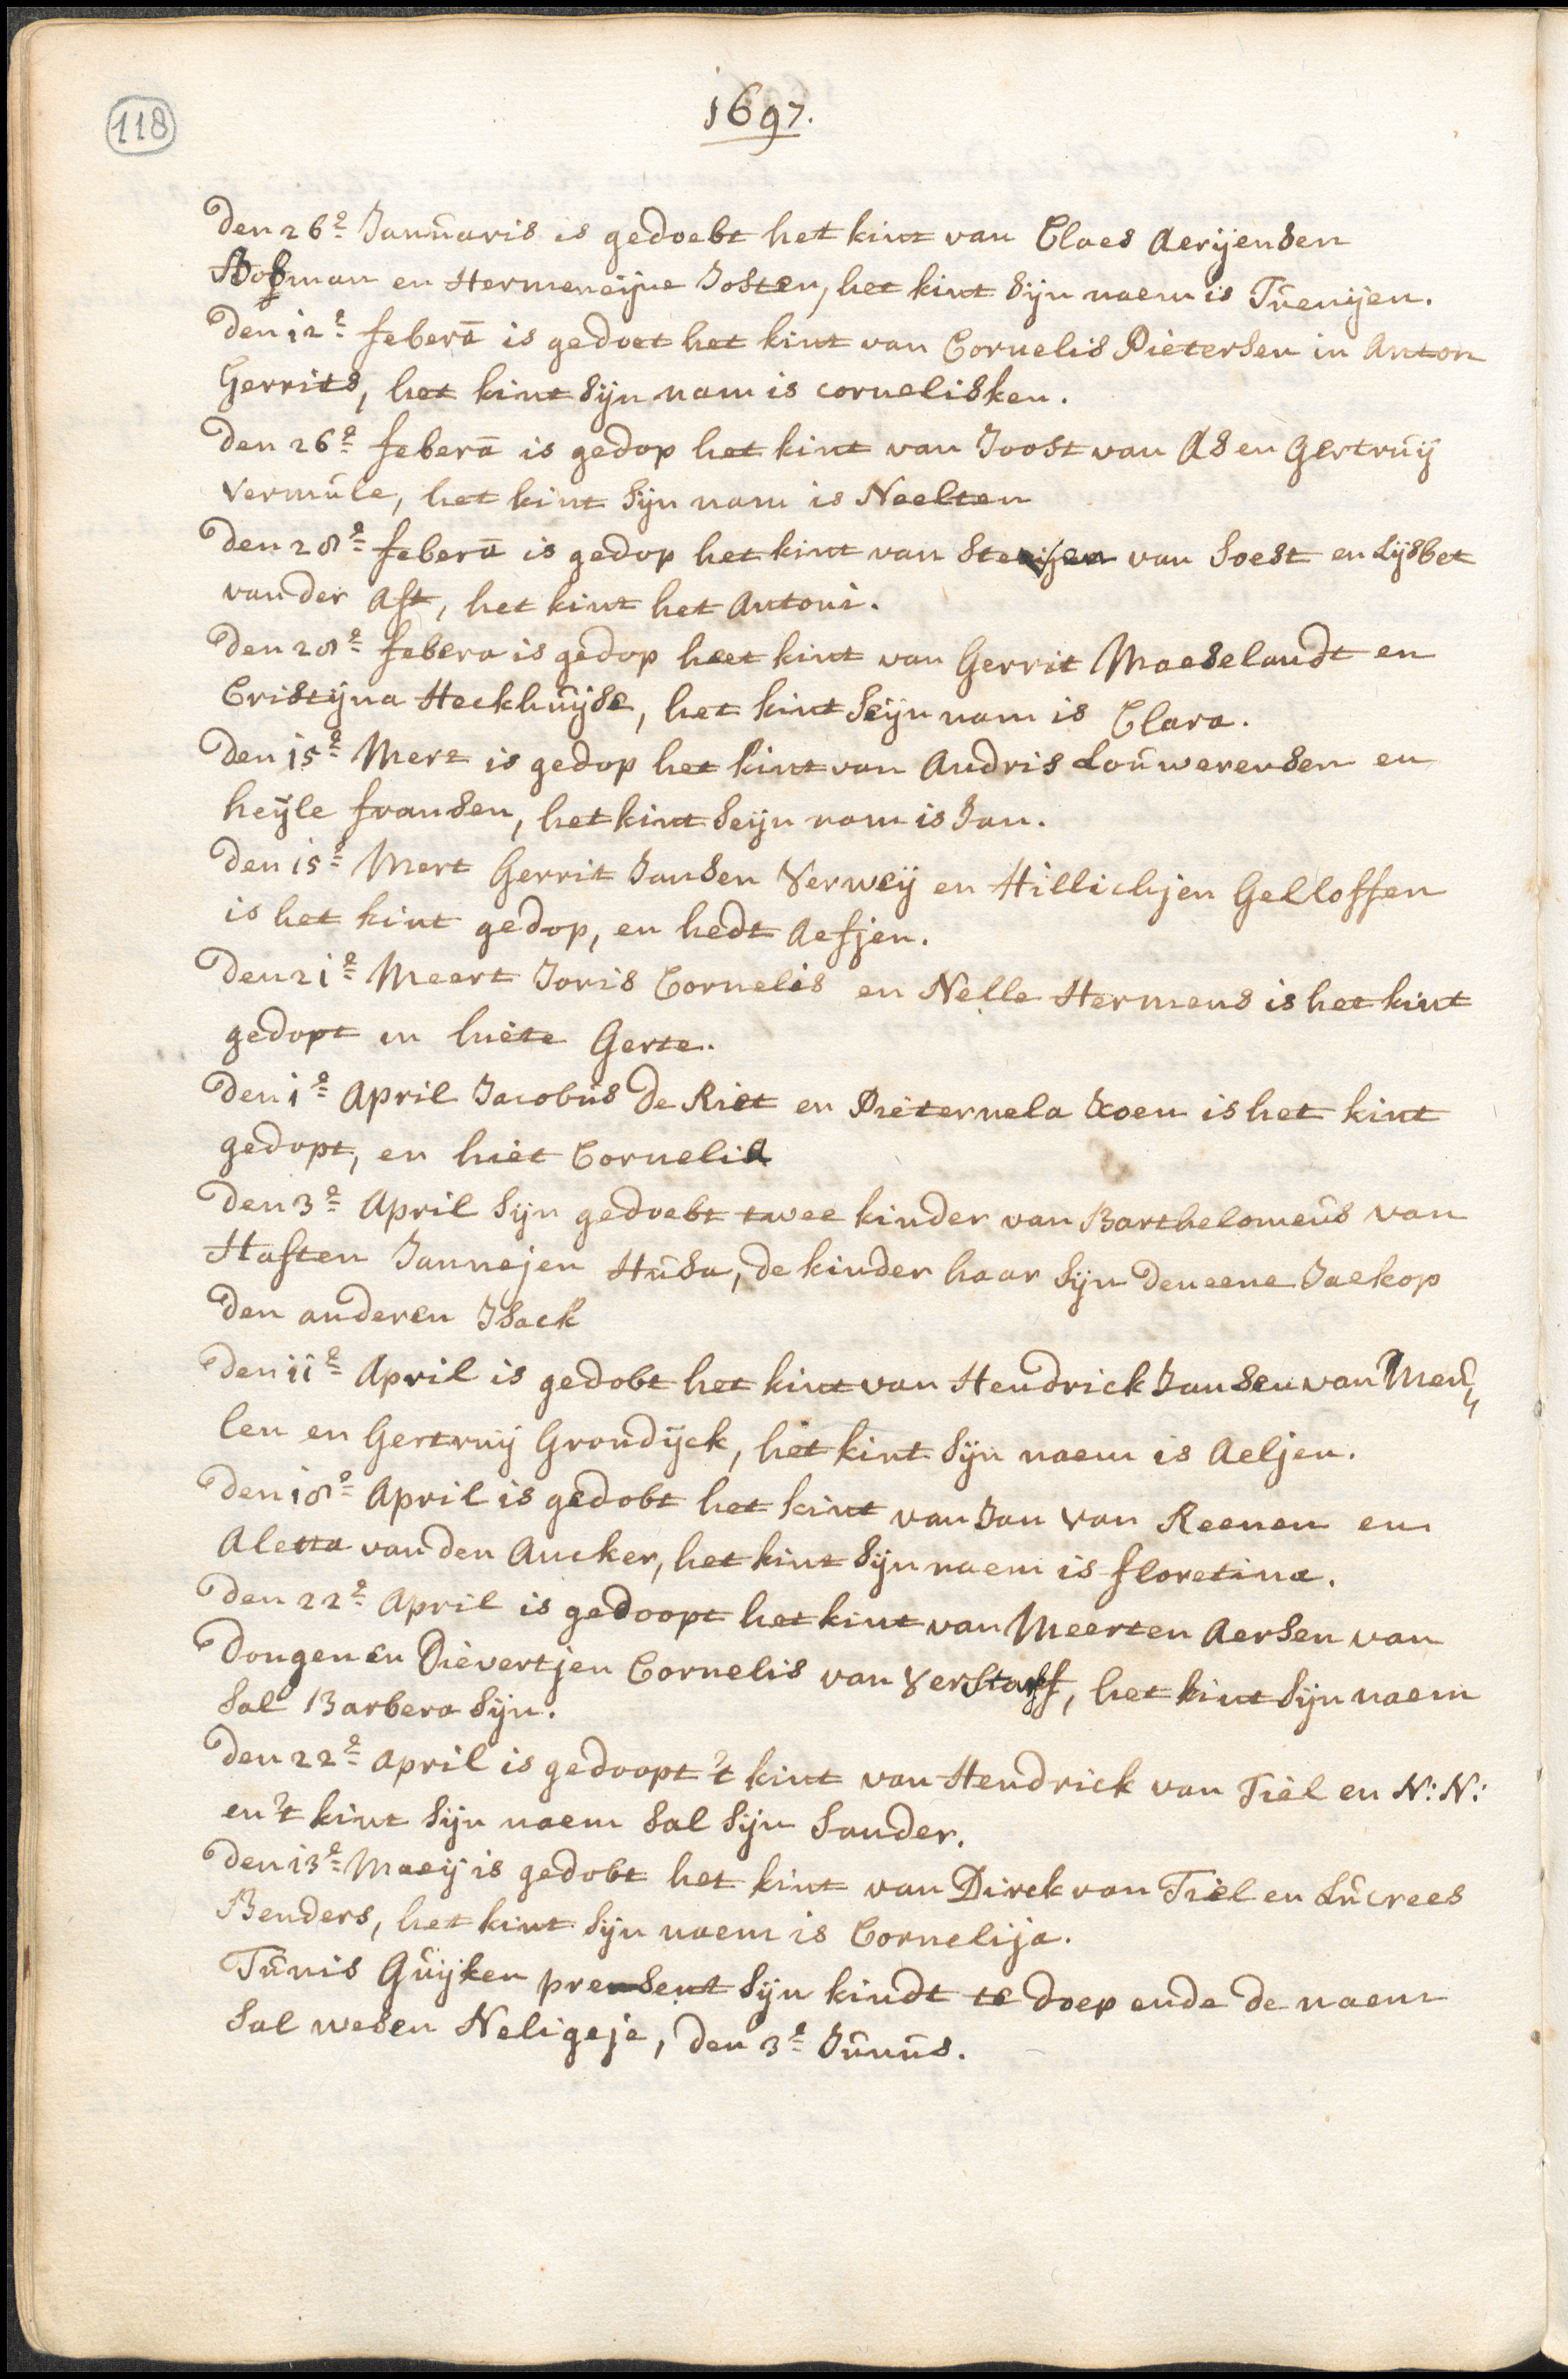 118
1697.
Den 26e Januaris is gedoebt het kint van Claes Aerijensen
Bosman en Hermeneijne Josten, het kint sijn naem is Tuenijen.
Den 12e febera is gedoet het kint van Cornelis Pietersen in Anton
Gerrits, het kint sijn nam is cornelisken.
Den 26e febera is gedop het kint van Joost van As en Gertruij
Vermule, het kint sijn nam is Neelten
Den 28e febera is gedop het kint van van Soest en Lijsbet
van der Ast, het kint het Antoni.
Den 28e febera is gedop heet kint van Gerrit Maeselandt en
Cristijna Heckhuijse, het kint seijn nam is Clara.
Den 15e Mert is gedop het kint van Andris Louwerensen en
heijle fransen, het kint seijn nam is Jan.
Den 15e Mert Gerrit Jansen Verweij en Hillichjen Gelloffen
is het kint gedop, en hedt Aefjen.
Den 21e Meert Joris Cornelis en Nelle Hermens is het kint
gedopt en hiete Gerte.
Den 1e April Jacobus De Riet en Pieternela Koen is het kint
gedopt, en hiet Cornelia
Den 3e April sijn gedoebt twee kinder van Barthelomeus van
Haften Jannejen Husa, de kinder haar sijn den eene Jaekop
Den anderen Isack
Den 11e April is gedobt het kint van Hendrick Jansen van Meu„
len en Gertruij Grondijck, het kint sijn naem is Aeljen.
Den 18e April is gedobt het kint van Jan van Reenen en
Aletta van den Ancker, het kint sijn naem is floretina.
Den 22e April is gedoopt het kint van Meerten Aersen van
Dongen en Dievertjen Cornelis van , het kint sijn naem
sal Barbera sijn.
Den 22e April is gedoopt 't kint van Hendrick van Tiel en N: N:
en 't kint sijn naem sal sijn Sander.
Den 13e Maeij is gedobt het kint van Dirck van Tiel en Lucrees
Benders, het kint sijn naem is Cornelija.
Tunis Guijken present sijn kindt te doep ende de naem
sal wesen Neligeje, den 3e Junus.